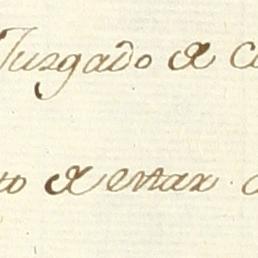 Juzgado de C
to de estar